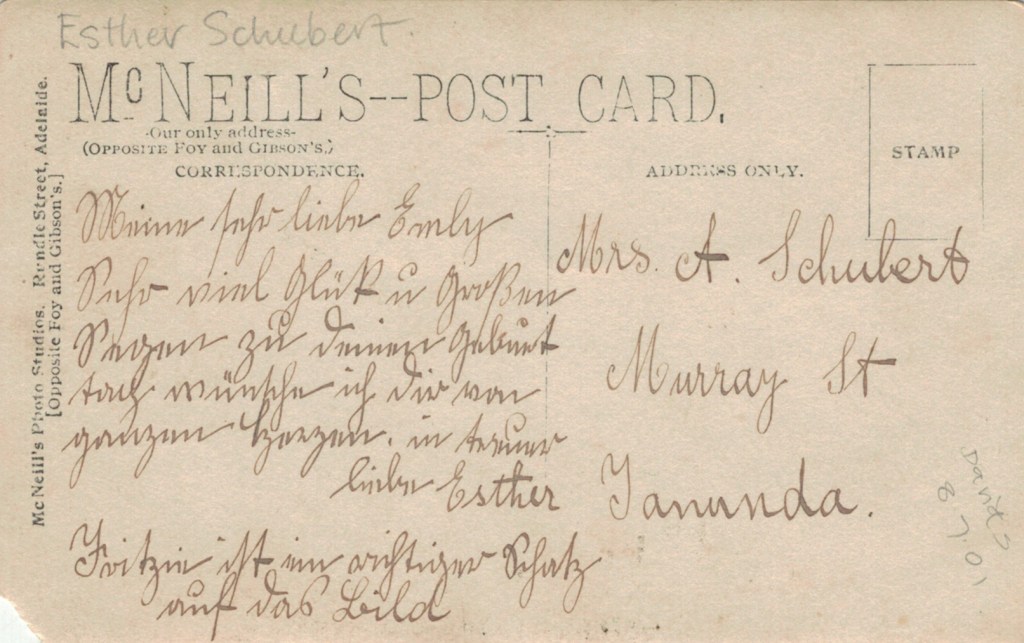 Esther Schubert.
McNEILL'S--POST CARD.
-Our only address-
(OPPOSITE FOY AND GIBSON'S.)
CORRESPONDENCE.
ADDRESS ONLY.
STAMP
McNeill's Photo Studios. Rundle Street, Adelaide.
[Opposite Foy and Gibson's.]
Meine sehr liebe Emly
Sehr viel Glük u Großen
Segen zu deinen Geburt
tach wünsche ich dir von
ganzen Herzen. in treuer
liebe Esther
Fritzie ist ein richtiger Schatz
auf das Bild
Mrs. A. Schubert
Murray St
Tanunda.
David S
8.7.01